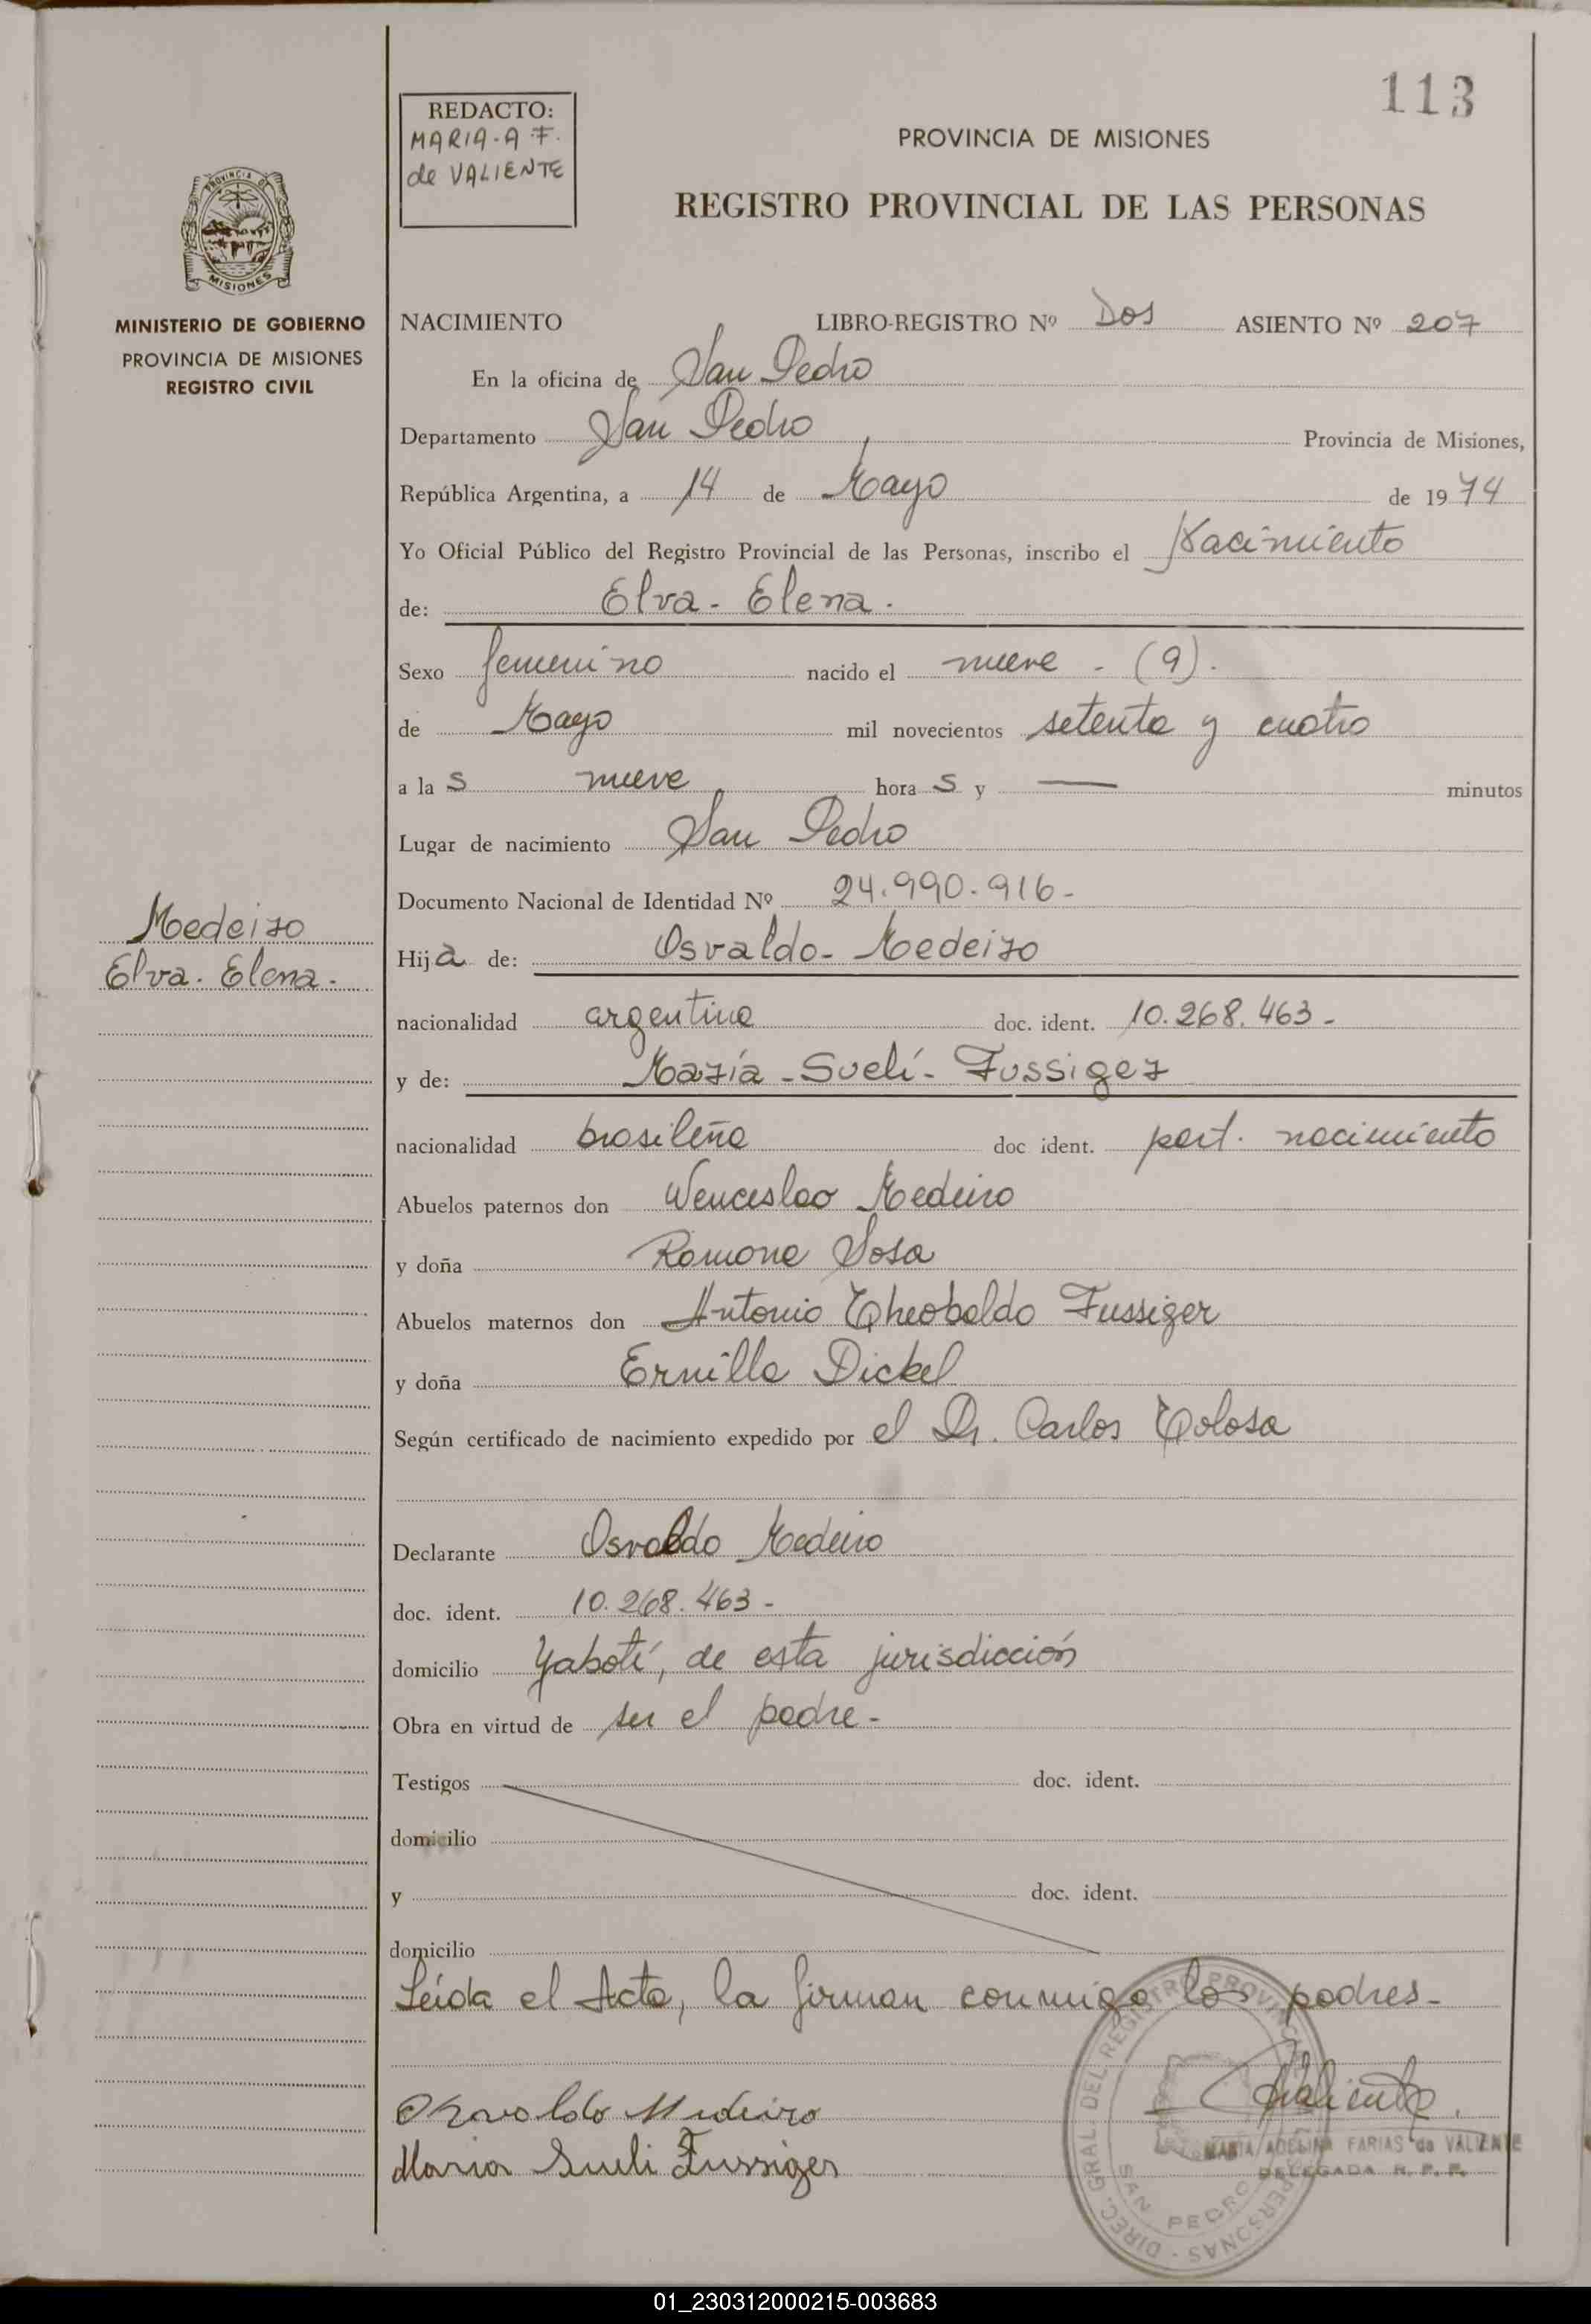 113
REDACTO:
MARIA-A-F.
de VALIENTE
PROVINCIA DE MISIONES
REGISTRO PROVINCIAL DE LAS PERSONAS
PROVINCIA DE
MISIONES
MINISTERIO DE GOBIERNO
PROVINCIA DE MISIONES
REGISTRO CIVIL
NACIMIENTO LIBRO-REGISTRO Nº Dos ASIENTO Nº 207
En la oficina de San Pedro
Departamento San Pedro, Provincia de Misiones,
República Argentina, a 14 de Mayo de 1974
Yo Oficial Público del Registro Provincial de las Personas, inscribo el Nacimiento
de: Elva - Elena.
Sexo femenino nacido el nueve - (9).
de Mayo mil novecientos setenta y cuatro
a las nueve horas y — minutos
Lugar de nacimiento San Pedro
Documento Nacional de Identidad Nº 24.990.916-
Medeiro
Elva. Elena.
Hija de: Osvaldo - Medeiro
nacionalidad argentina doc. ident. 10.268.463-
y de: María - Suelí - Fussiger
nacionalidad brasileña doc ident. part. nacimiento
Abuelos paternos don Wenceslao Medeiro
y doña Ramona Sosa
Abuelos maternos don Antonio Theobaldo Fussiger
y doña Ernilla Dickel
Según certificado de nacimiento expedido por el Dr. Carlos Tolosa
Declarante Osvaldo Medeiro
doc. ident. 10.268.463-
domicilio Yabotí, de esta jurisdicción
Obra en virtud de ser el padre-
Testigos doc. ident.
domicilio
y doc. ident.
domicilio
Leída el Acta, la firman conmigo los padres-
Osvaldo Medeiro
Maria Sueli Fussiger
Valiente.
MARIA ADELINA FARIAS de VALIENTE
DELEGADA R. P. P.
DIREC. GRAL. DEL REGISTRO PROVINCIAL PERSONAS
SAN PEDRO
01_230312000215-003683